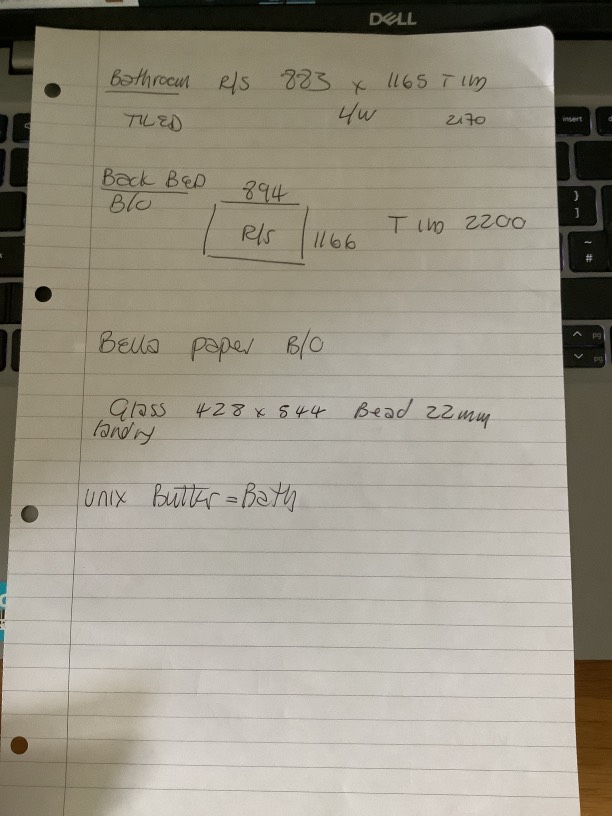 DELL
insert
Bathroom R/S 883 x 1165 T 1no
TILED L/W 2170
Back BED
B/O
894
R/S 1166 T 1no 2200
}
]
~
#
Bella paper B/O
pg
pg
Glass 428 x 844 Bead 22mm
landry
unix Butter = Bath